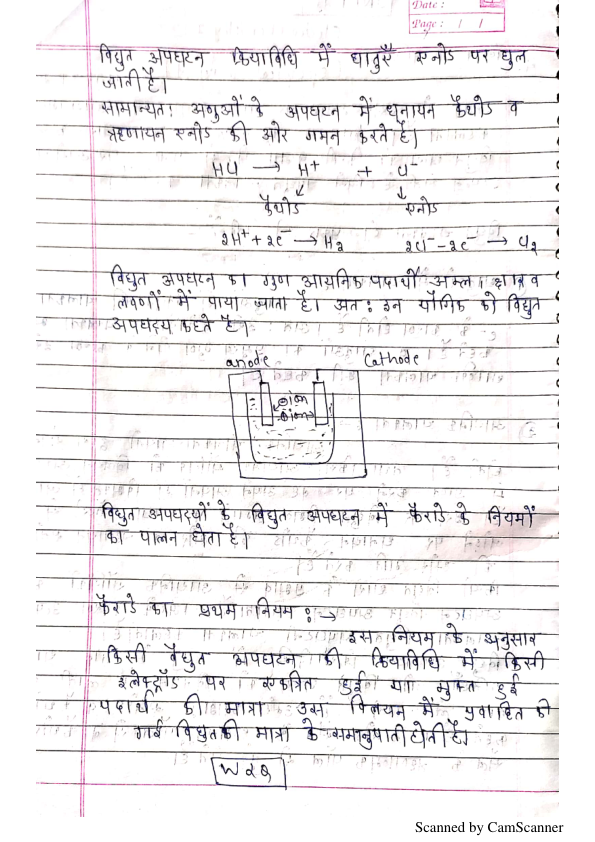 Date :
Page :
विद्युत अपघटन क्रियाविधि में धातुएँ एनोड पर घुल
जाती है।
सामान्यतः अणुओं के अपघटन में धनायन कैथोड व
ऋणायन एनोड की ओर गमन करते है।
HCl → H⁺ + Cl⁻
कैथोड एनोड
2H⁺ + 2e⁻ → H₂ 2Cl⁻ - 2e⁻ → Cl₂
विद्युत अपघटन का गुण आयनिक पदार्थो अम्ल, क्षार व
लवणों में पाया जाता है। अतः इन यौगिक को विद्युत
अपघट्य कहते है।
anode Cathode
⊕ion
⊖ion
विद्युत अपघट्यों के विद्युत अपघटन में फैराडे के नियमों
का पालन होता है।
फैराडे का प्रथम नियम :→
इस नियम के अनुसार
किसी वैद्युत अपघटन की क्रियाविधि में किसी
इलेक्ट्रॉड पर एकत्रित हुई या मुक्त हुई
पदार्थ की मात्रा उस विलयन में प्रवाहित की
गई विद्युत की मात्रा के समानुपाती होती है।
W ∝ Q
Scanned by CamScanner